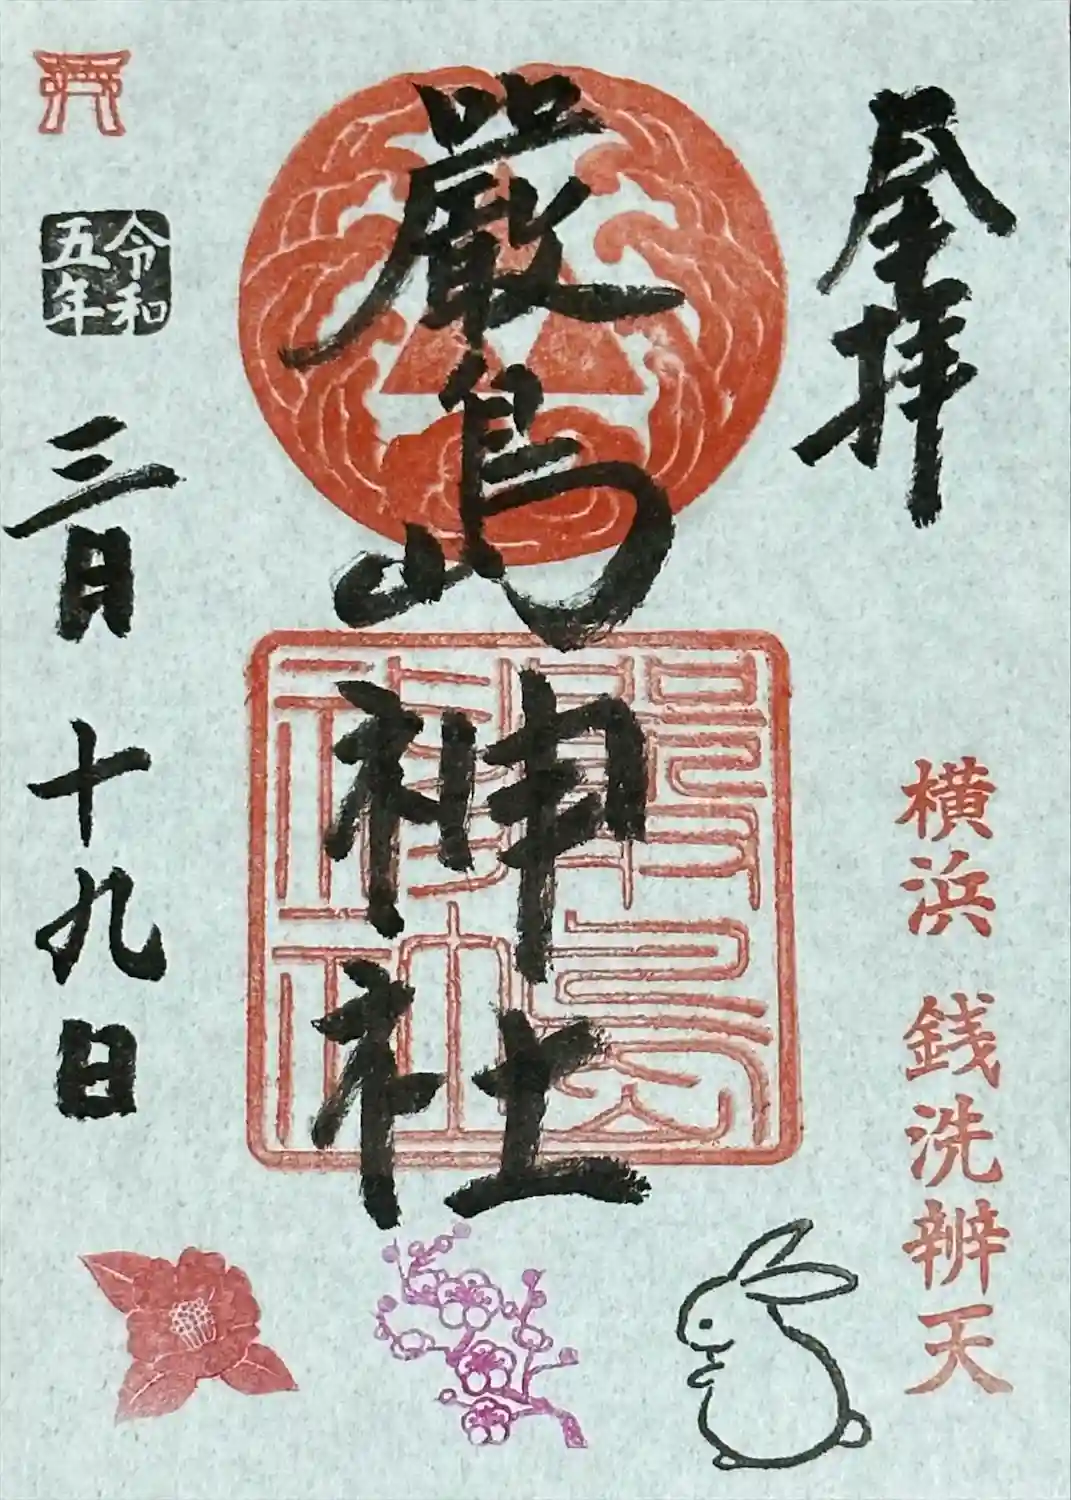 奉拝
横浜 銭洗辨天
嚴島神社
嚴島神社
令和五年
三月十九日